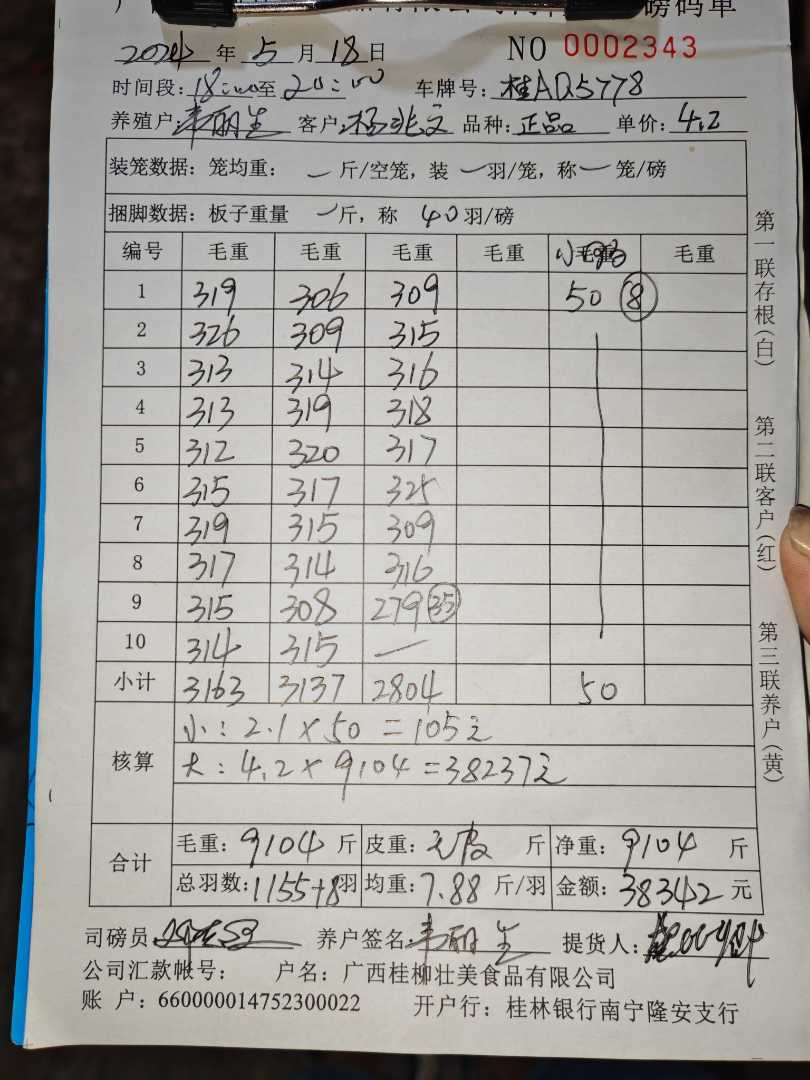 磅码单
2024年5月18日 NO 0002343
时间段:18:00至20:00 车牌号:桂AQ5778
养殖户:韦丽生 客户:杨兆文 品种:正品 单价:4.2
装笼数据:笼均重: — 斤/空笼,装 — 羽/笼,称 — 笼/磅
捆脚数据:板子重量 — 斤,称 40 羽/磅
编号 毛重 毛重 毛重 毛重 毛重 毛重
1 319 306 309 50 ⑧
2 326 309 315
3 313 314 316
4 313 319 318
5 312 320 317
6 315 317 325
7 319 315 309
8 317 314 316
9 315 308 279 ㉟
10 314 315 —
小计 3163 3137 2804 50
核算
小:2.1×50=105元
大:4.2×9104=38237元
合计
毛重:9104斤 皮重:无皮斤 净重:9104斤
总羽数:1155+8羽 均重:7.88斤/羽 金额:38342元
司磅员 养户签名 韦丽生 提货人:
公司汇款帐号: 户名:广西桂柳壮美食品有限公司
账 户:660000014752300022 开户行:桂林银行南宁隆安支行
第一联存根(白)
第二联客户(红)
第三联养户(黄)